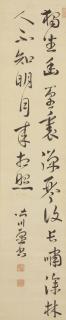 獨坐幽篁裏彈琴復長嘯深林
人不知明月来相照